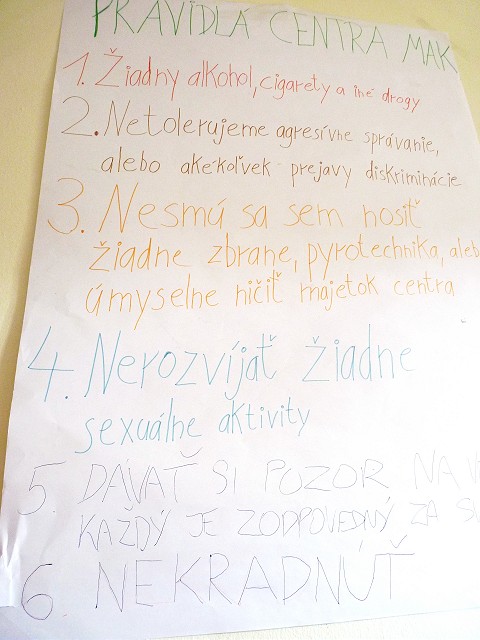 PRAVIDLÁ CENTRA MAK
1. Žiadny alkohol, cigarety a iné drogy
2. Netolerujeme agresívne správanie,
alebo akékoľvek prejavy diskriminácie
3. Nesmú sa sem nosiť
žiadne zbrane, pyrotechnika, aleb
úmyselne ničiť majetok centra
4. Nerozvíjať žiadne
sexuálne aktivity
5. DÁVAŤ SI POZOR NA
KAŽDÝ JE ZODPOVEDNÝ ZA
6. NEKRADNÚŤ